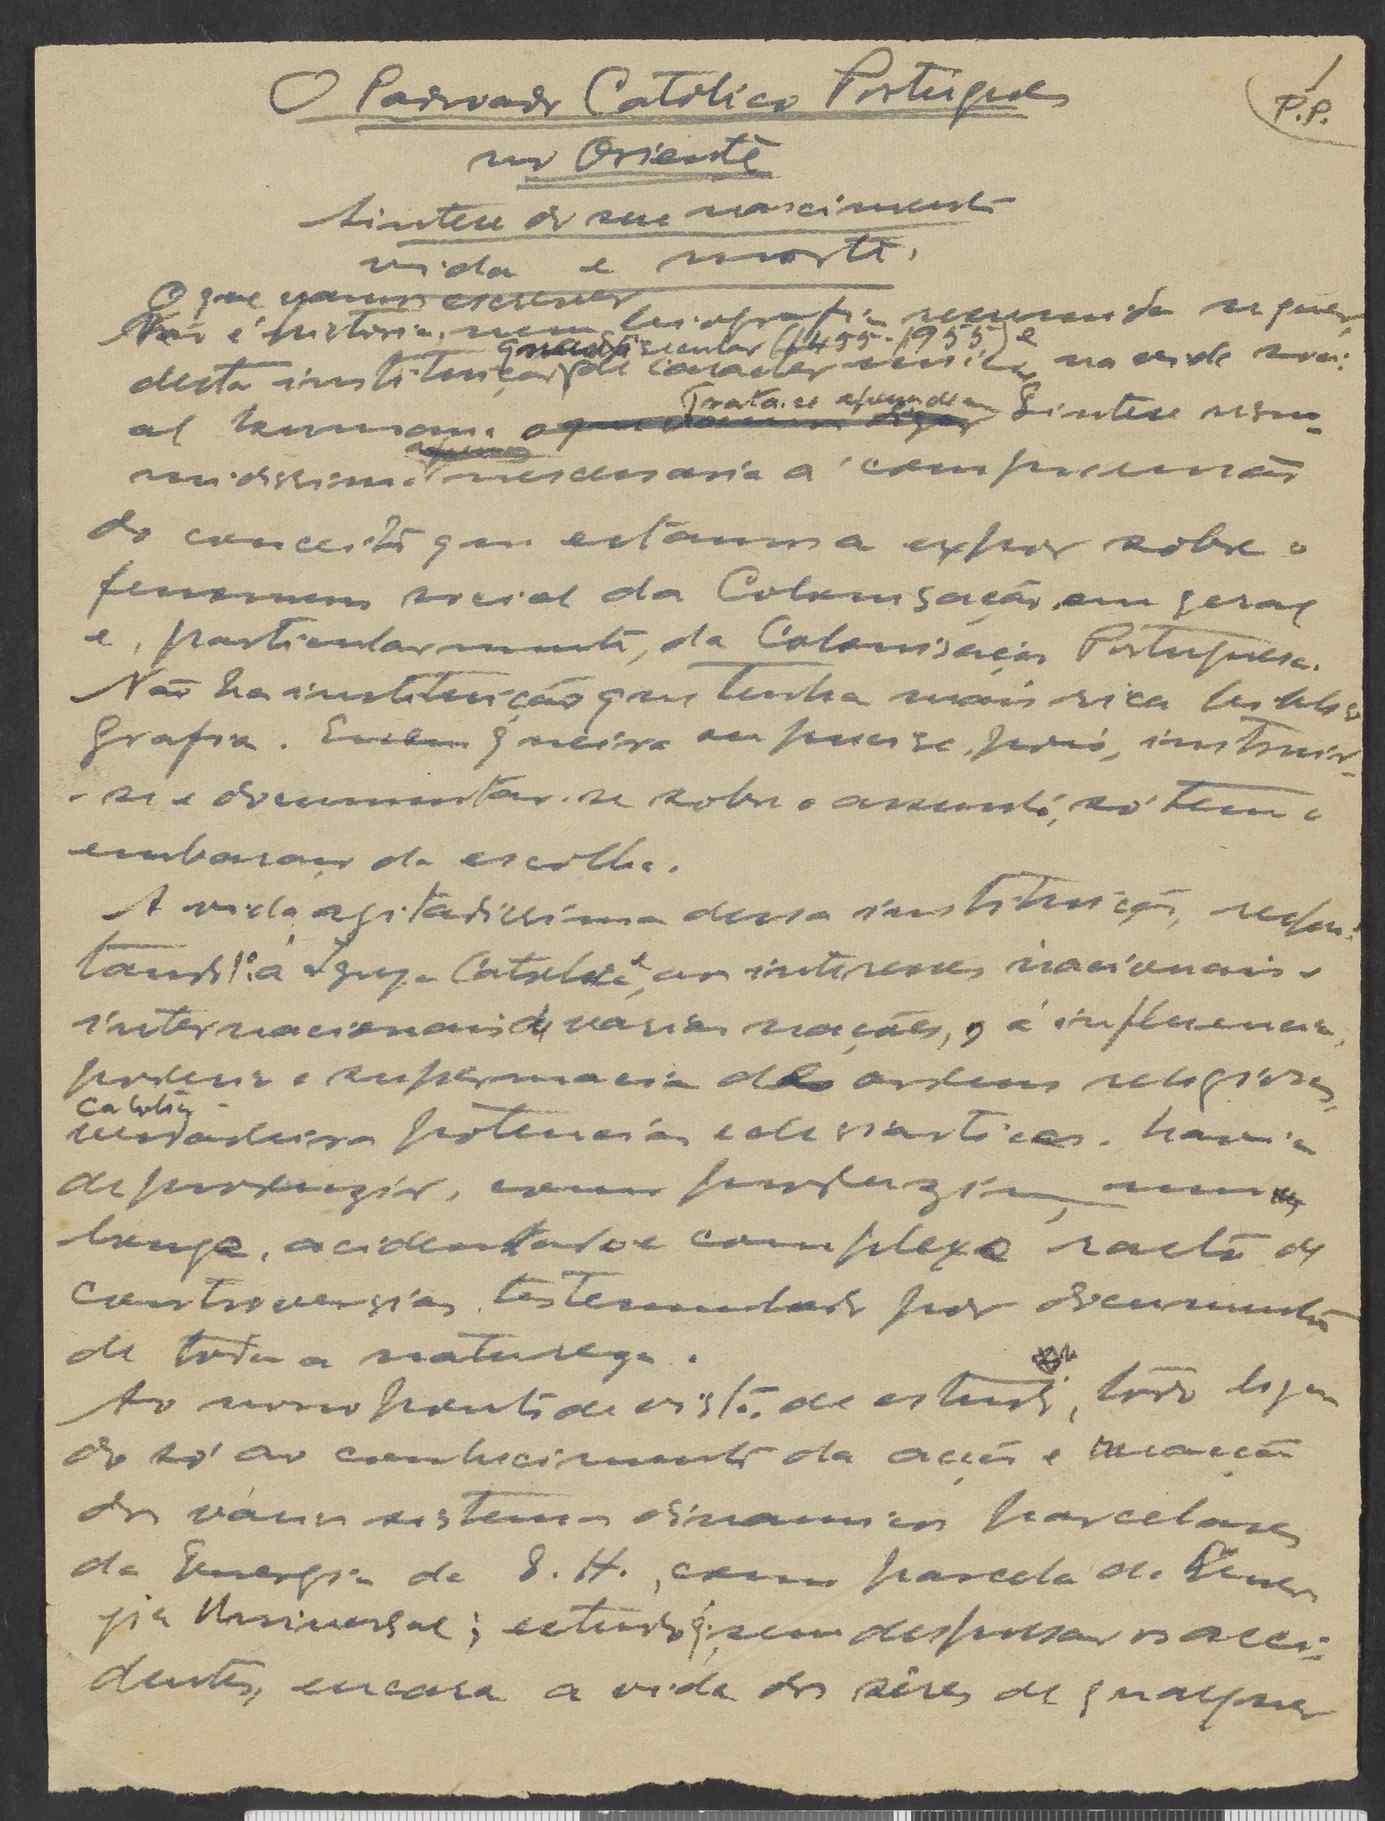 O Padroado Católico Português
P.P.
no Oriente
Sintese do seu nascimento
vida e morte.
O que vamos escrever
Não é historia, nem biografia resumida sequer,
secular (1455-1955) e
desta instituição de caracter na vida soci-
Trata-se apenas de
al humana. Sintese resu-
midissima necessaria á compreensão
do conceito que estamos a expor sobre o
fenomeno social da Colonisação em geral
e, particularmente, da Colonisação Portuguesa.
Não ha instituição que tenha mais rica biblio
grafia. Quem queira ou precise, pois, instruir-
-se e documentar-se sobre o assunto, só tem o
embaraço da escolha.
A vida agitadissima dessa instituição, respei-
tando á Igreja Catolica, aos interesses nacionais e
internacionais de varias nações, e á influencia,
poderio e supermacia das ordens religiosas,
catolicas
verdadeiras potencias eclesiasticas, havia
de produzir, como produziu, uma
longa, acidentada e complexa de
controversias, testemunhado por documentos
de toda a natureza.
Ao nosso ponto de vista de estudo, todo liga
do só ao conhecimento da acção e reacção
dos vários sistemas dinamicos parcelares
da Energia da E. H., como parcela da Ener
gia Universal; estudo q., sem despresar os acci-
dentes, encara a vida dos sêres de qualquer